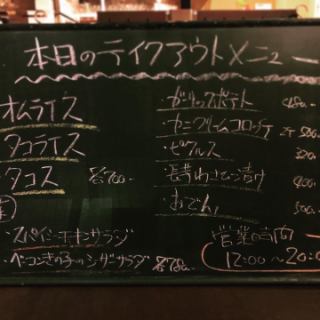 本日のテイクアウトメニュー
オムライス
タコライス
タコス 各700-
・スパイシーチキンサラダ
・ベーコンきの子のシーザーサラダ 各780-
・ガーリックポテト
・カニクリームコロッケ
・ピクルス
・長芋わさび漬け 400-
・おでん 500-
営業時間
12:00~20:0